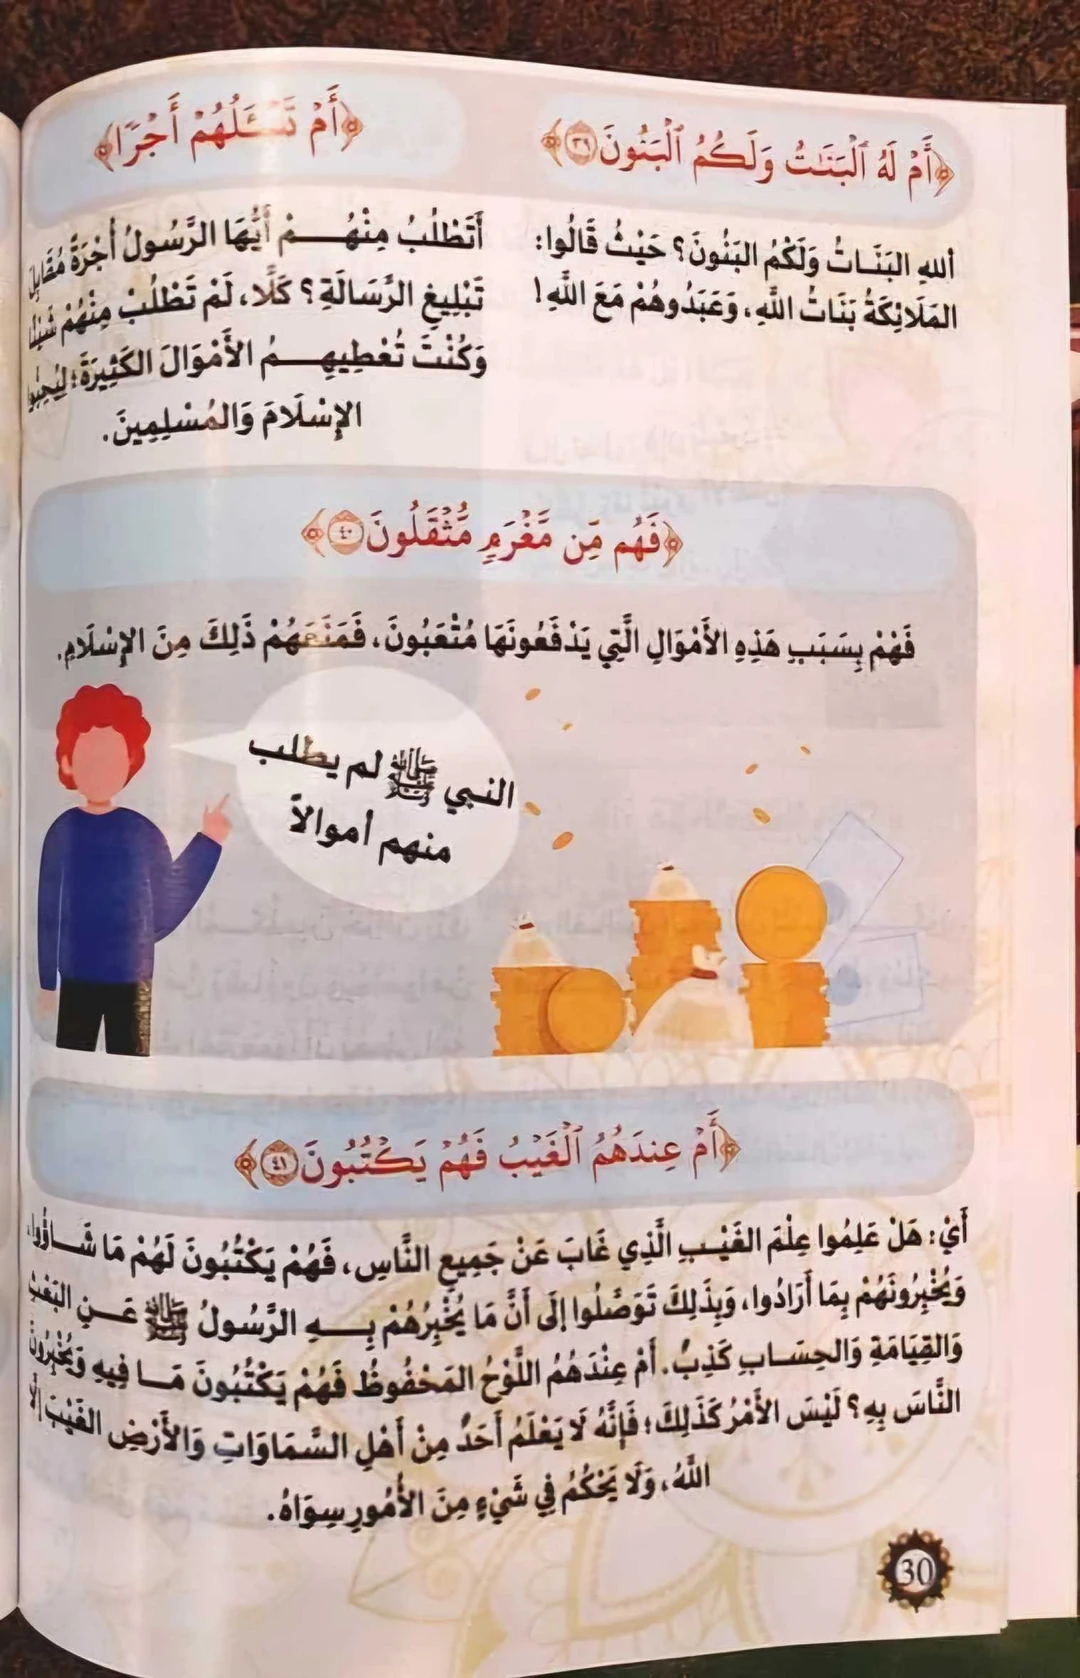 ﴿أَمْ لَهُ ٱلْبَنَٰتُ وَلَكُمُ ٱلْبَنُونَ ٣٩﴾
أَللهِ البَنَاتُ وَلَكُمُ البَنُونَ؟ حَيْثُ قَالُوا:
المَلَائِكَةُ بَنَاتُ اللَّهِ، وَعَبَدُوهُمْ مَعَ اللَّهِ!
﴿أَمْ تَسْـَٔلُهُمْ أَجْرًا﴾
أَتَطْلُبُ مِنْهُمْ أَيُّهَا الرَّسُولُ أُجْرَةً مُقَابِلَ
تَبْلِيغِ الرِّسَالَةِ؟ كَلَّا، لَمْ تَطْلُبْ مِنْهُمْ شَيْئًا
وَكُنْتَ تُعْطِيهِمُ الأَمْوَالَ الكَثِيرَةَ؛ لِيُحِبُّوا
الإِسْلَامَ وَالمُسْلِمِينَ.
﴿فَهُم مِّن مَّغْرَمٍ مُّثْقَلُونَ ٤٠﴾
فَهُمْ بِسَبَبِ هَذِهِ الأَمْوَالِ الَّتِي يَدْفَعُونَهَا مُتْعَبُونَ، فَمَنَعَهُمْ ذَلِكَ مِنَ الإِسْلَامِ.
النبي ﷺ لم يطلب
منهم أموالاً
﴿أَمْ عِندَهُمُ ٱلْغَيْبُ فَهُمْ يَكْتُبُونَ ٤١﴾
أَيْ: هَلْ عَلِمُوا عِلْمَ الغَيْبِ الَّذِي غَابَ عَنْ جَمِيعِ النَّاسِ، فَهُمْ يَكْتُبُونَ لَهُمْ مَا شَاؤُوا،
وَيُخْبِرُونَهُمْ بِمَا أَرَادُوا، وَبِذَلِكَ تَوَصَّلُوا إِلَى أَنَّ مَا يُخْبِرُهُمْ بِهِ الرَّسُولُ ﷺ عَنِ البَعْثِ
وَالقِيَامَةِ وَالحِسَابِ كَذِبٌ. أَمْ عِنْدَهُمُ اللَّوْحُ المَحْفُوظُ فَهُمْ يَكْتُبُونَ مَا فِيهِ وَيُخْبِرُونَ
النَّاسَ بِهِ؟ لَيْسَ الأَمْرُ كَذَلِكَ؛ فَإِنَّهُ لَا يَعْلَمُ أَحَدٌ مِنْ أَهْلِ السَّمَاوَاتِ وَالأَرْضِ الغَيْبَ إِلَّا
اللَّهُ، وَلَا يَحْكُمُ فِي شَيْءٍ مِنَ الأُمُورِ سِوَاهُ.
30